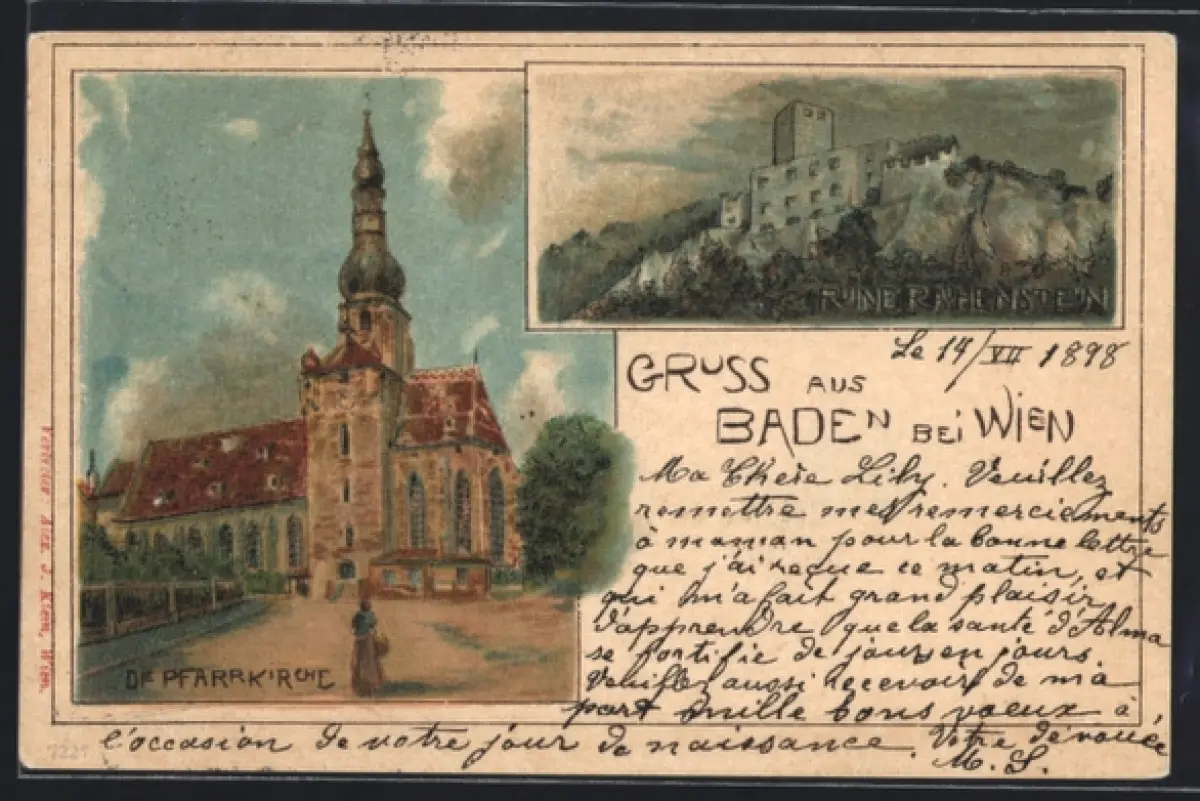 RUINE RAUHENSTEIN
Le 14/VII 1898
GRUSS AUS
BADEN BEI WIEN
Ma Chère Lily. Veuillez
remettre mes remerciements
à maman pour la bonne lettre
que j'ai reçue ce matin, et
qui m'a fait grand plaisir
d'apprendre que la santé d'Alma
se fortifie de jour en jours.
Veuillez aussi recevoir de ma
part mille bons voeux à
l'occasion de votre jour de naissance. Votre dévouée
M. S.
DIE PFARRKIRCHE
J. Klem, Wien.
7225